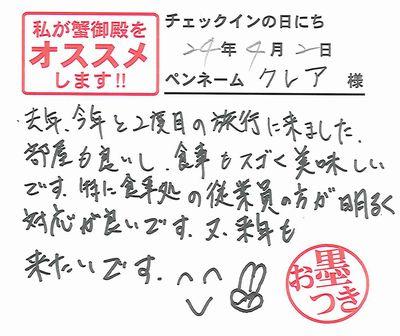 私が蟹御殿を
オススメ
します!!
チェックインの日にち
24年4月2日
ペンネーム クレア 様
去年、今年と2度目の旅行に来ました。
部屋も良いし、食事もスゴく美味しい
です。特に食事処の従業員の方が明るく
対応が良いです。又、来年も
来たいです。
お墨つき